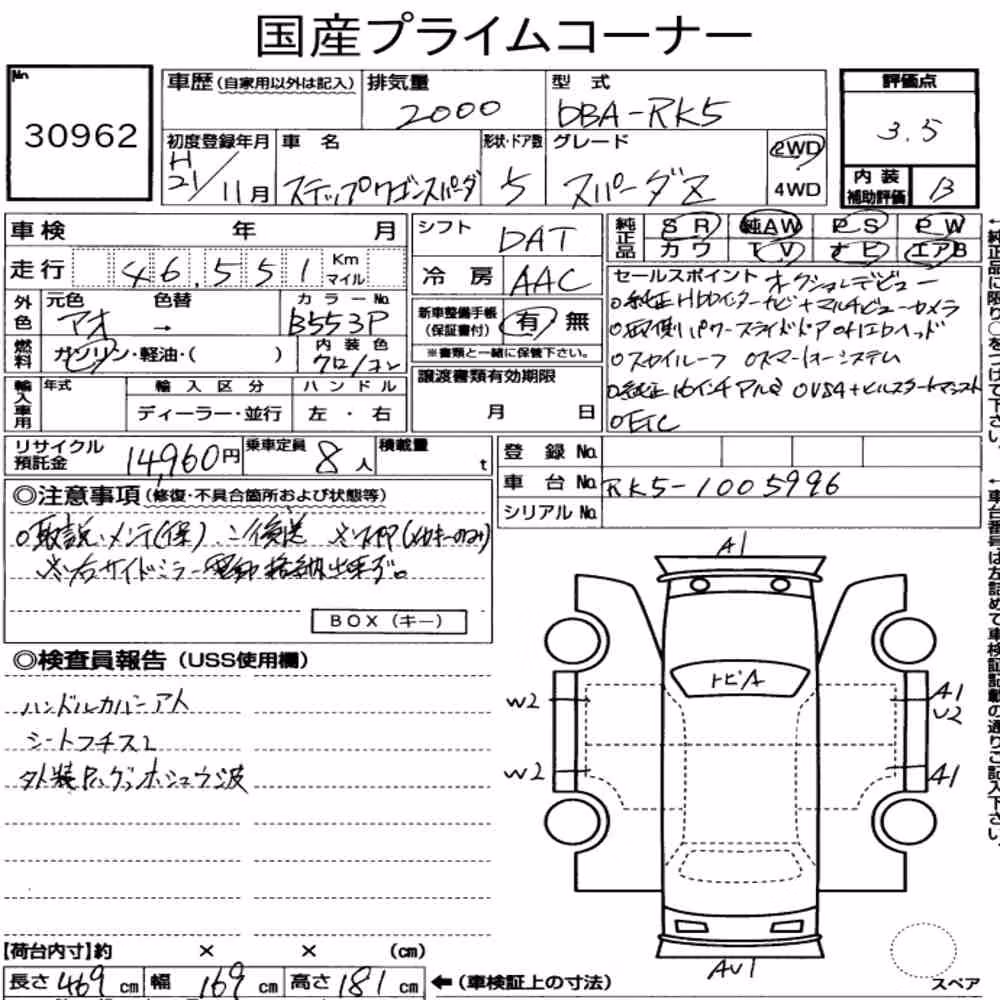 国産プライムコーナー
No.
30962
車歴(自家用以外は記入) 排気量 2000 型式 DBA-RK5
評価点
3.5
内装補助評価 B
初度登録年月 H21/11月 車名 ステップワゴンスパーダ 形状・ドア数 5 グレード スパーダZ 2WD 4WD
車検 年 月
走行 46,551 Km マイル
シフト DAT
冷房 AAC
純正品 SR 純AW PS PW
カワ TV ナビ エアB
外色 元色 アオ 色替 → カラーNo. B553P
燃料 ガソリン・軽油・( ) 内装色 クロ/コン
新車整備手帳(保証書付) 有 無
※書類と一緒に保管下さい。
セールスポイント オークションデビュー
○純正HDDインターナビ+マルチビューカメラ
○両側パワースライドドア ○HIDヘッド
○スカイルーフ ○スマートキーシステム
○純正16インチアルミ ○VSA+ヒルスタートアシスト
○ETC
輸入車用 年式 輸入区分 ハンドル
ディーラー・並行 左・右
譲渡書類有効期限
月 日
リサイクル預託金 14,960円 乗車定員 8人 積載量 t
登録No.
車台No. RK5-1005996
シリアルNo.
◎注意事項(修復・不具合箇所および状態等)
○取説、メンテ(保)、
※右サイドミラー電動格納出来ず。
BOX(キー)
◎検査員報告(USS使用欄)
ハンドルカバーアト
シートフチスレ
外装
A1
トビA
W2
A1
U2
W2
A1
AU1
スペア
【荷台内寸】約 × × (cm)
長さ 469 cm 幅 169 cm 高さ 181 cm ←(車検証上の寸法)
←純正品に限り○をつけて下さい。
←車台番号は左詰めで車検証記載の通りご記入下さい。